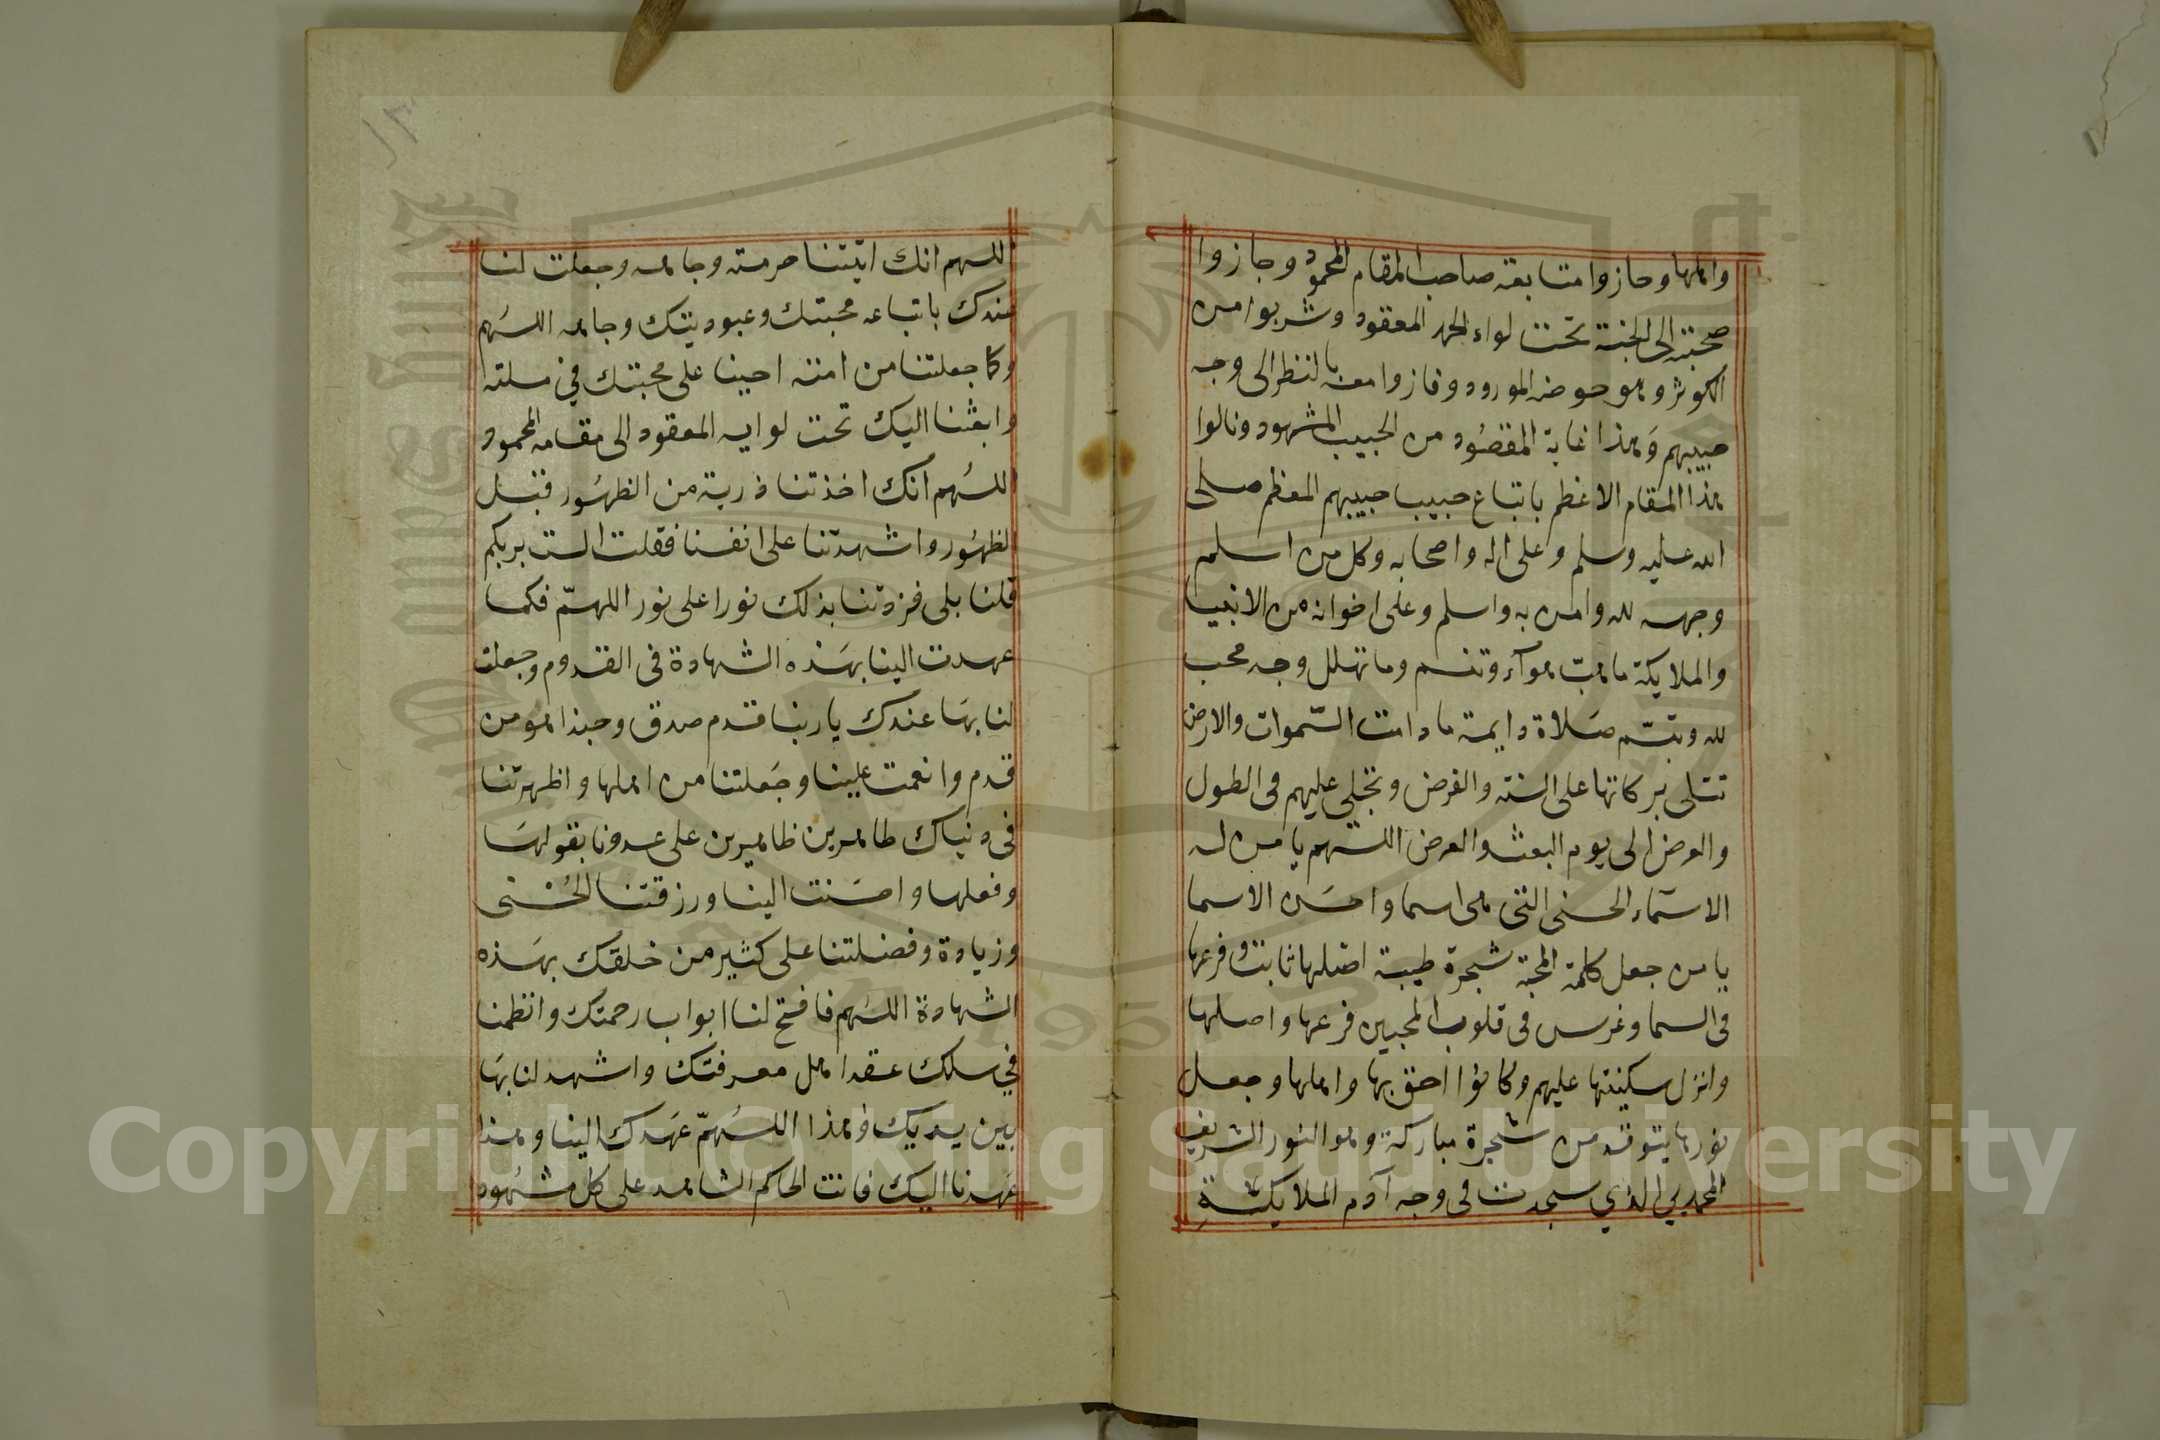 واهلها وحازوا متابعة صاحب المقام المحمود وجازوا
صحبته الى الجنة تحت لواء الحمد المعقود وشربوا من
الكوثر وهو حوضه المورود وفازوا معه بالنظر الى وجه
حبيبهم وَهذا غاية المقصُود من الحبيب المشهود ونالوا
هذا المقام الاعظم باتباع حبيب حبيبهم المعظم صلى
الله عليه وسلم وعلى اله واصحابه وكل من اسلم
وجهه لله وامن به واسلم وعلى اخوانه من الانبيا
والملايكة ماهبّ هوآء وتنسم وما تهلل وجه محب
لله وتبسّم صَلاة دايمة ما دامت السّموات والارض
تتلى بركاتها على السنة والفرض وتجلى عليهم فى الطول
والعرض الى يوم البعث والعرض اللسّهم يا من له
الاسمآء الحسنى التى هى اسما واحسَن الاسما
يا من جعل كلمة المحبة شجرة طيبة اصلها ثابت وفرعها
فى السما وغرس فى قلوب المحبين فرعها واصلها
وانزل سكينتها عليهم وكانوا احق بها واهلها وجعل
نورها يتوقد من شجرة مباركة وهو النور الشريف
المحمدي الذي سجدت فى وجه آدم الملايكة
اللهم انك اتيتنا حرمته وجاهه وجعلت لنا
عندك باتباعه محبتك وعبوديتك وجاهه اللهم
وكما جعلتنا من امته احينا على محبتك في ملته
وابعثنا اليك تحت لوايه المعقود الى مقامه المحمود
اللهم انك اخذتنا ذرية من الظهُور قبل
الظهُور واشهدتنا على انفسنا فقلت الست بربكم
قلنا بلى فزدتنا بذلك نورا على نور اللهمّ فكما
عهدت الينا بهَذه الشهادة فى القدوم وجعلت
لنا بهَا عندك يا ربنا قدم صدق وحبذا هو من
قدم وانعمت علينا وجَعلتنا من اهلها واظهرتنا
فى دنياك طاهرين ظاهرين على عدونا بقولهَا
وفعلها واحسَنت الينا ورزقتنا الحُسنى
وزيادة وفضلتنا على كثير من خلقك بهَذه
الشهادة اللهُم فافتح لنا ابواب رحمتك وانظمنا
في سلك عقد اهل معرفتك واشهد لنا بهَا
بين يديك فهذا اللهُمّ عهَدك الينا وهذا
عَهدنا اليك فانت الحاكم الشاهد على كل مشهُود
١٣
Copyright © King Saud University
King Saud University
1957